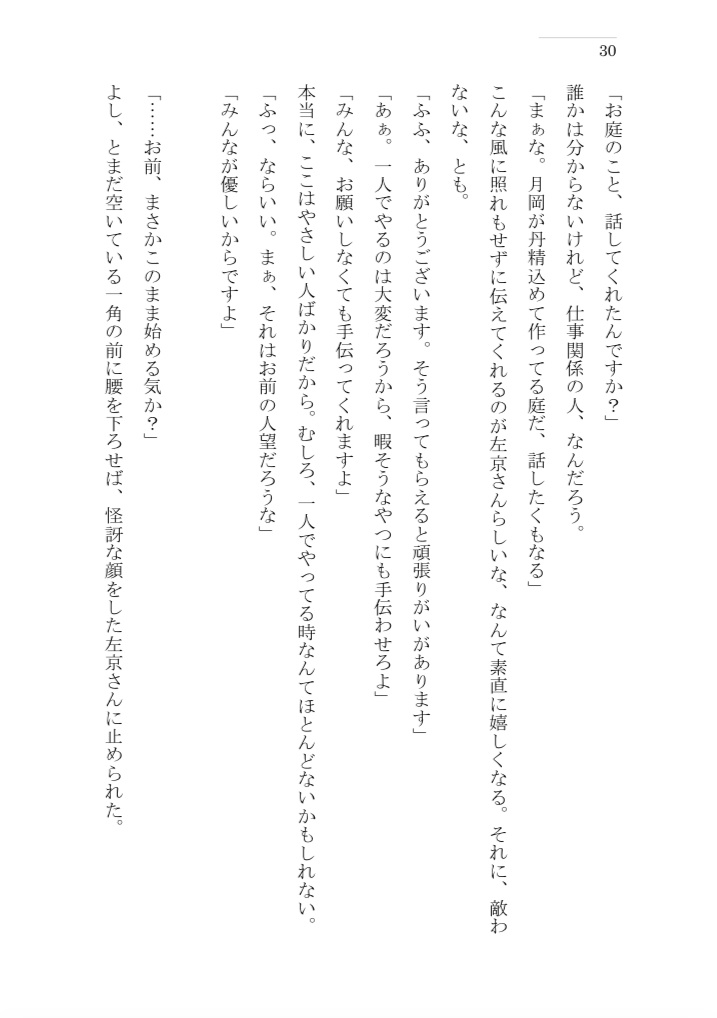 30
「お庭のこと、話してくれたんですか？」
誰かは分からないけれど、仕事関係の人、なんだろう。
「まぁな。月岡が丹精込めて作ってる庭だ、話したくもなる」
こんな風に照れもせずに伝えてくれるのが左京さんらしいな、なんて素直に嬉しくなる。それに、敵わ
ないな、とも。
「ふふ、ありがとうございます。そう言ってもらえると頑張りがいがあります」
「あぁ。一人でやるのは大変だろうから、暇そうなやつにも手伝わせろよ」
「みんな、お願いしなくても手伝ってくれますよ」
本当に、ここはやさしい人ばかりだから。むしろ、一人でやってる時なんてほとんどないかもしれない。
「ふっ、ならいい。まぁ、それはお前の人望だろうな」
「みんなが優しいからですよ」
「……お前、まさかこのまま始める気か？」
よし、とまだ空いている一角の前に腰を下ろせば、怪訝な顔をした左京さんに止められた。